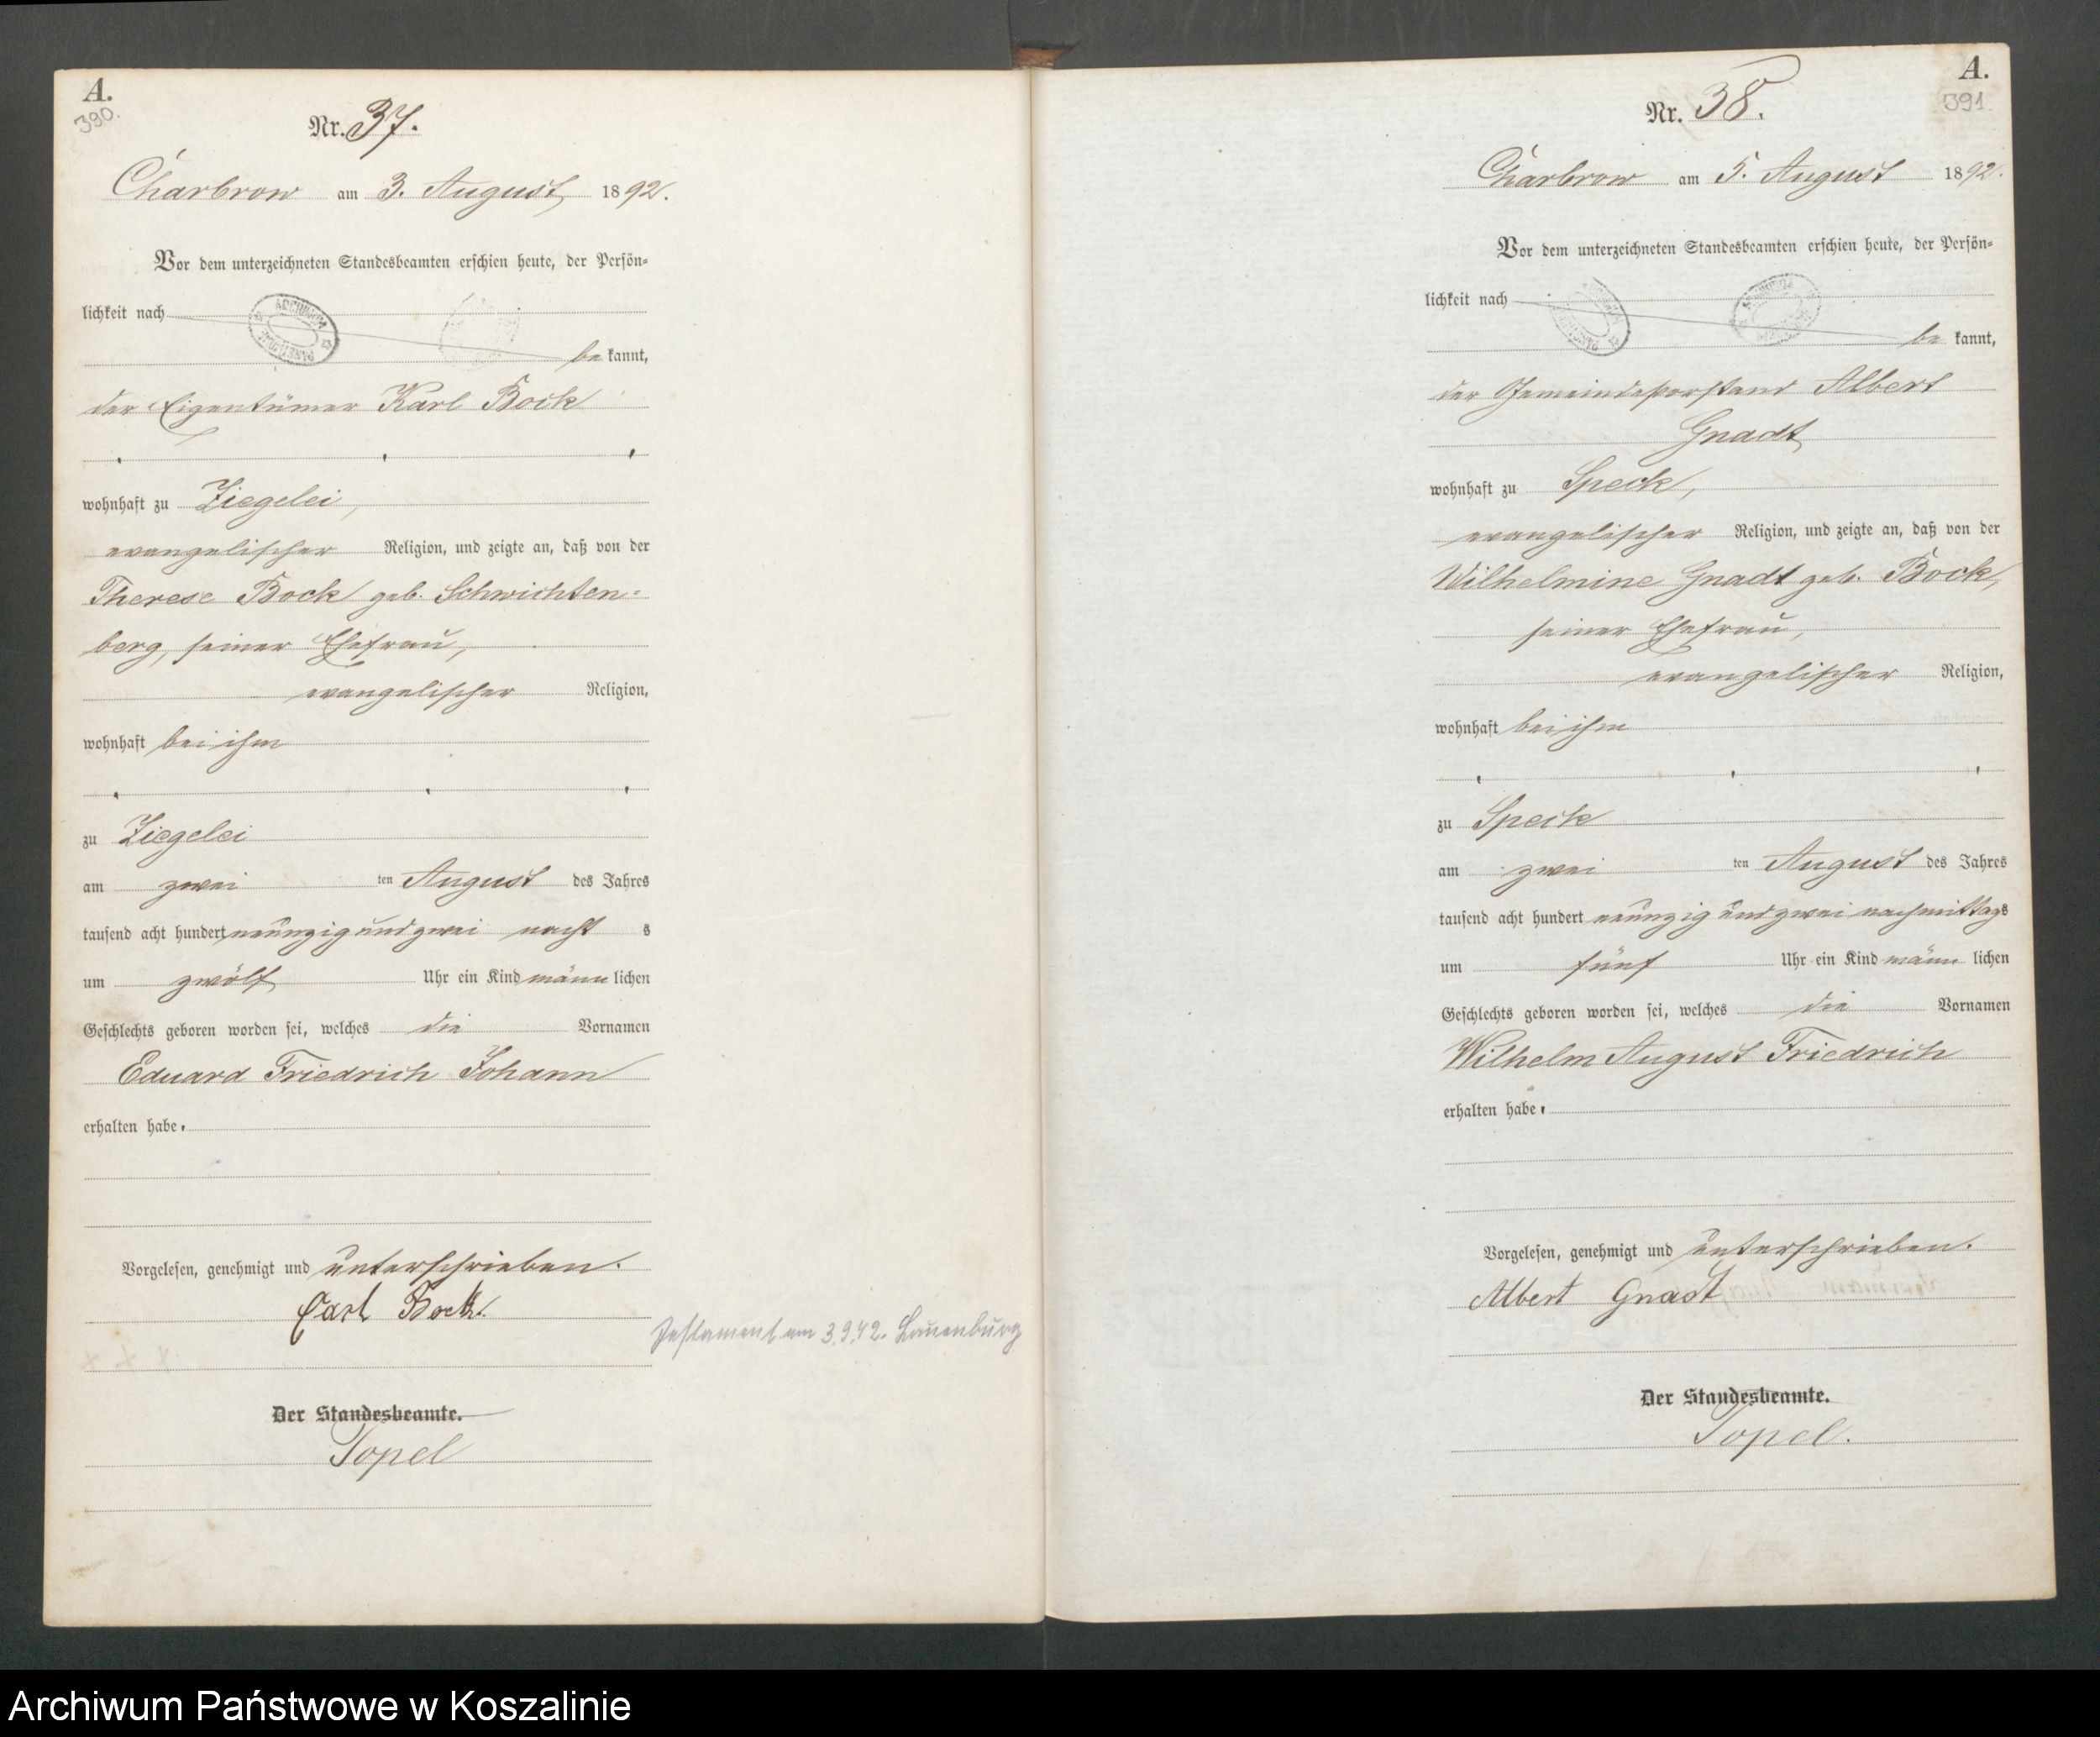 A.
390.
Nr. 37.
Charbrow am 3. August 1892.
Vor dem unterzeichneten Standesbeamten erschien heute, der Persön=
lichkeit nach
be kannt,
der Eigentümer Karl Bock
wohnhaft zu Ziegelei,
evangelischer Religion, und zeigte an, daß von der
Therese Bock geb. Schwichten=
berg, seiner Ehefrau,
evangelischer Religion,
wohnhaft bei ihm
zu Ziegelei
am zwei ten August des Jahres
tausend acht hundert neunzig und zwei nacht s
um zwölf Uhr ein Kind männ lichen
Geschlechts geboren worden sei, welches die Vornamen
Eduard Friedrich Johann
erhalten habe.
Vorgelesen, genehmigt und unterschrieben.
Carl Bock.
Testament am 3.9.42. Lauenburg
Der Standesbeamte.
Topel
A.
391.
Nr. 38.
Charbrow am 5. August 1892.
Vor dem unterzeichneten Standesbeamten erschien heute, der Persön=
lichkeit nach
be kannt,
der Gemeindevorstand Albert
Gnadt
wohnhaft zu Speck,
evangelischer Religion, und zeigte an, daß von der
Wilhelmine Gnadt geb. Bock,
seiner Ehefrau,
evangelischer Religion,
wohnhaft bei ihm
zu Speck
am zwei ten August des Jahres
tausend acht hundert neunzig und zwei nachmittags
um fünf Uhr ein Kind männ lichen
Geschlechts geboren worden sei, welches die Vornamen
Wilhelm August Friedrich
erhalten habe.
Vorgelesen, genehmigt und unterschrieben.
Albert Gnadt
Der Standesbeamte.
Topel.
Archiwum Państwowe w Koszalinie